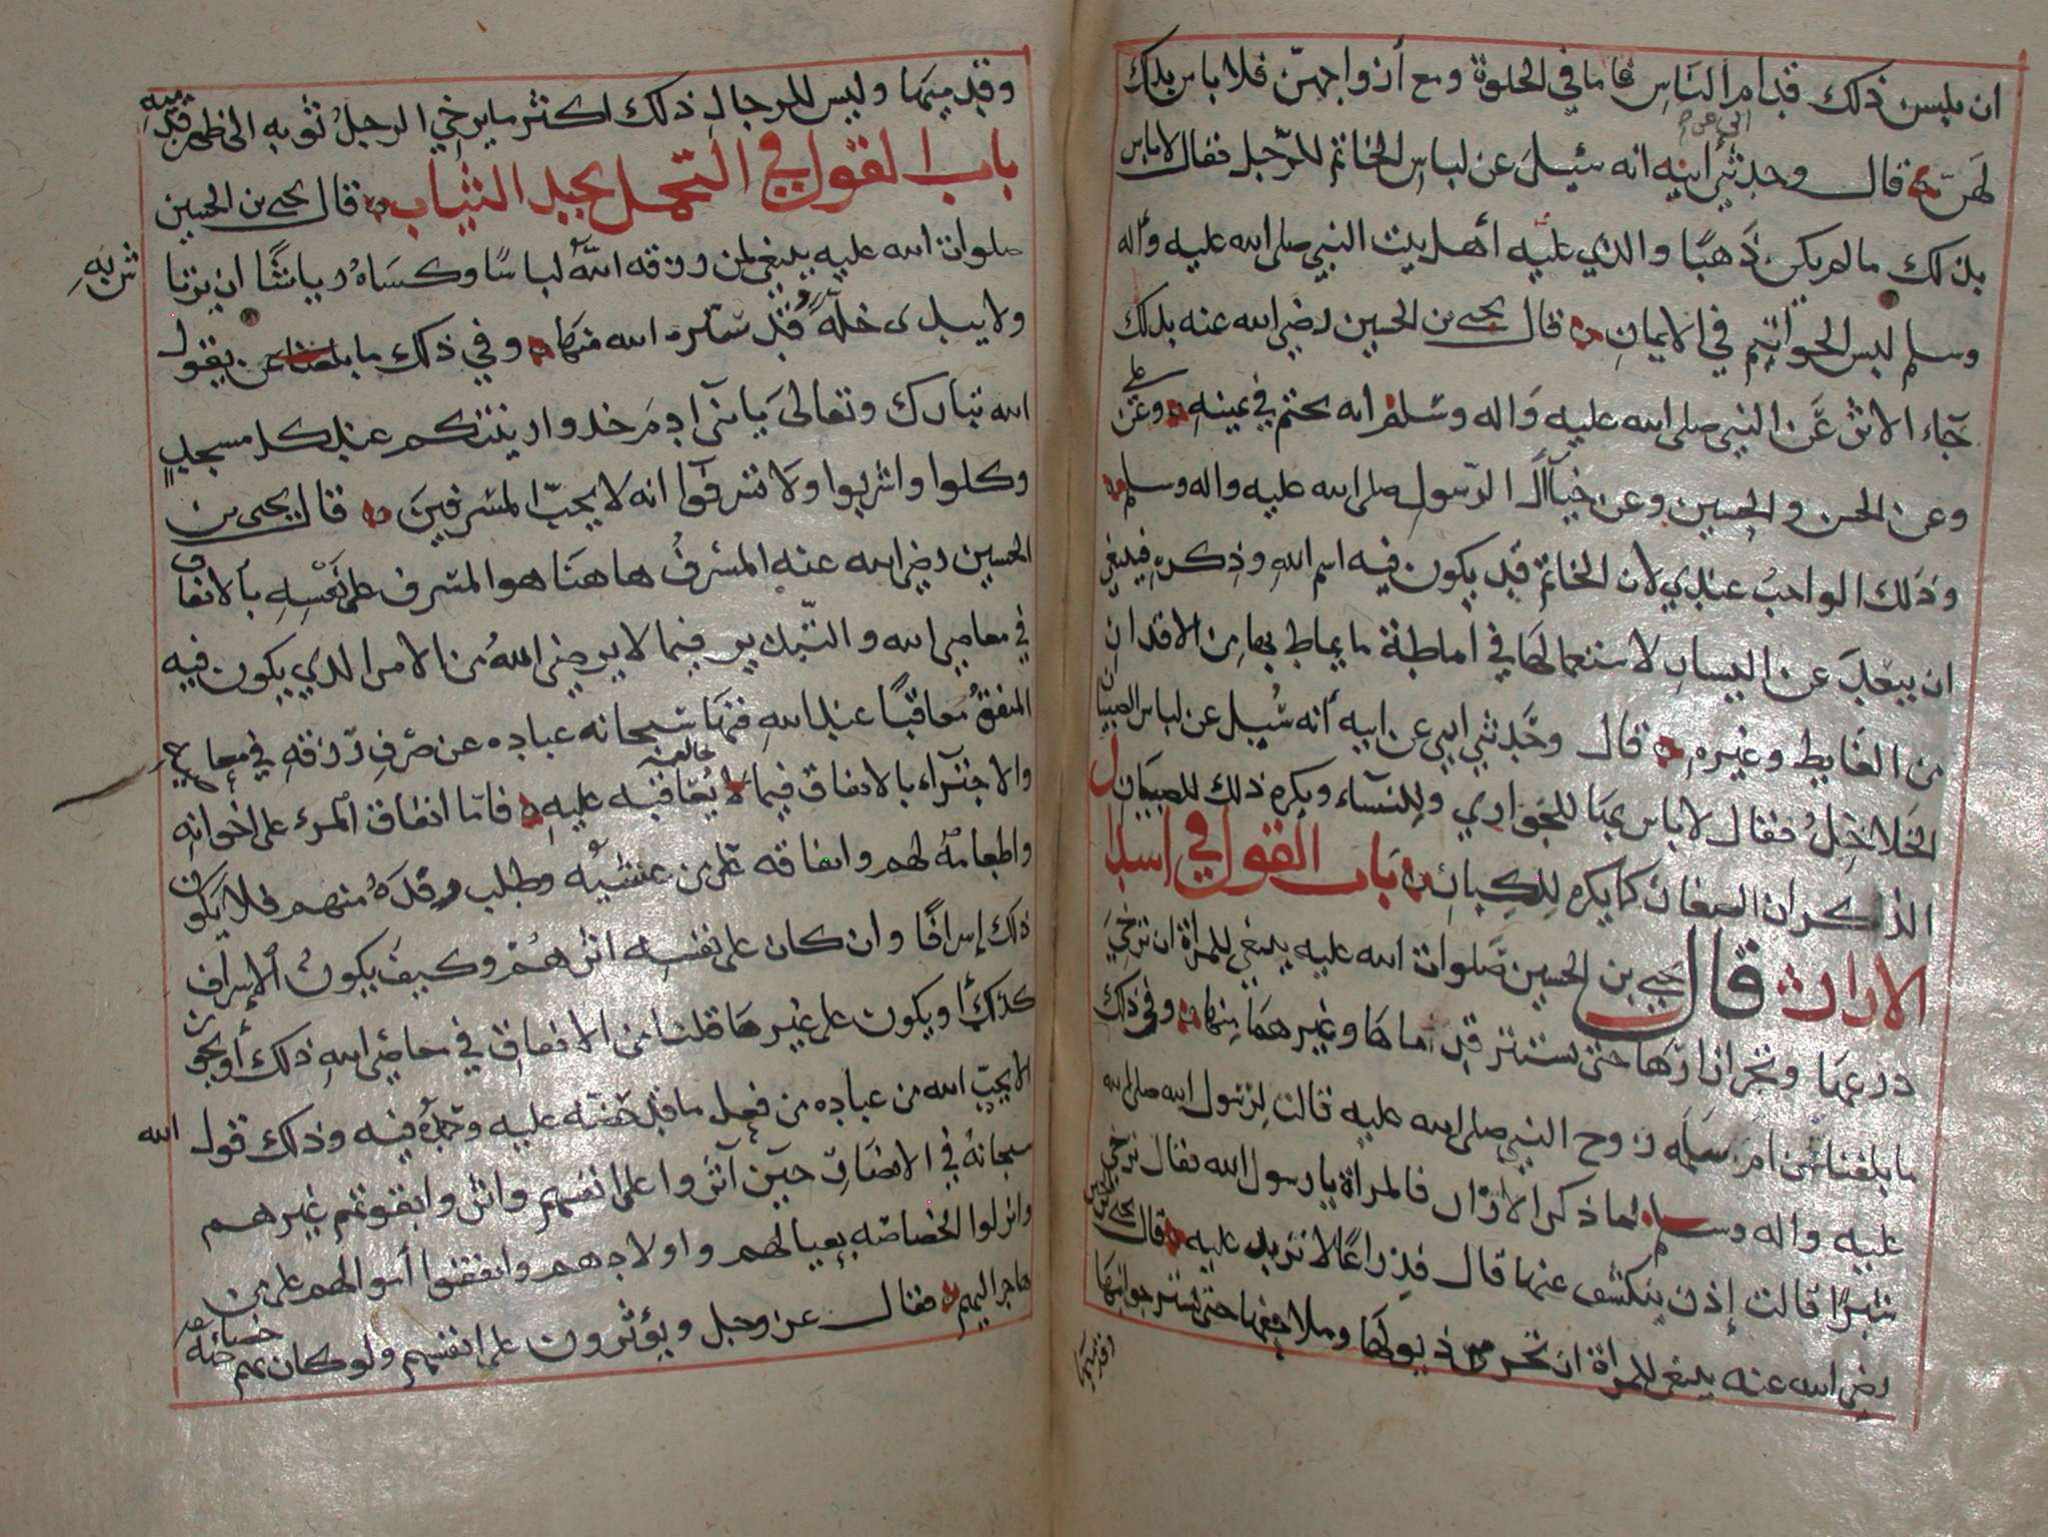 ان يلبسن ذلك قدام الناس فاما في الخلوة ومع أزواجهن فلا باس بذلك
لهن قال وحدثني ابيه انه سئل عن لباس الخاتم للرجل فقال لا باس
بذلك ما لم يكن ذهبا والذي عليه أهل بيت النبي صلى الله عليه وأله
وسلم لبس الخواتيم في الايمان قال يحيى بن الحسين رضي الله عنه بذلك
جاء الاثر عن النبي صلى الله عليه واله وسلم انه تختم في يمينه وعن علي
وعن الحسن والحسين وعن خيار آل الرسول صلى الله عليه واله وسلم
وذلك الواجب عندي لان الخاتم قد يكون فيه اسم الله وذكره فينبغي
ان يبعد عن اليسار لاستعمالها في اماطة ما يماط بها من الاقذار
من الغايط وغيره قال وحدثني ابي عن ابيه أنه سئل عن لباس الصبيان
الخلاخل فقال لا باس بها للجواري وللنساء ويكره ذلك للصبيان
الذكران الصغار كما يكره للكبار باب القول في اسبال
الازار قال يحيى بن الحسين صلوات الله عليه ينبغي للمراة ان ترخي
درعها وتجر ازارها حتى يستتر قدماها وغيرهما منها وفي ذلك
ما بلغنا عن ام سلمه زوج النبي صلى الله عليه قالت لرسول الله صلى الله
عليه واله وسلم لما ذكر الازار فالمراة يا رسول الله فقال ترخي
شبرا قالت إذن ينكشف عنها قال فذراعا لا تزيد عليه قال يحيى بن الحسين
رضي الله عنه ينبغي للمراة ان تجر من ذيولها وملاحفها حتى تستر جوانبها
وقدميها
وقدميها وليس للرجال ذلك اكثر ما يرخي الرجل ثوبه الى ظهر قدميه
باب القول في التجمل بجيد الثياب قال يحيى بن الحسين
صلوات الله عليه ينبغي لمن رزقه الله لباسا وكساه رياشا ان
ولا يبدى خلة قد ستره الله منها وفي ذلك ما يقول
الله تبارك وتعالى يا بني آدم خذوا زينتكم عند كل مسجد
وكلوا واشربوا ولا تسرفوا انه لا يحب المسرفين قال يحيى بن
الحسين رضي الله عنه المسرف هاهنا هو المسرف على نفسه بالانفاق
في معاصي الله والتبذير فيما لا يرضي الله من الامر الذي يكون فيه
المنفق معاقبا عند الله فنها سبحانه عباده عن صرف رزقه في معاصيه
والاجتراء بالانفاق فيما يعاقبه عليه فاما انفاق المرء على اخوانه
واطعامه لهم وانفاقه على من عشيه وطلب رفده منهم فلا يكون
ذلك إسرافا وان كان على نفسه اثرهم وكيف يكون الإسراف
كذلك أو يكون على غير ما قلنا من الانفاق في معاصي الله ذلك أو يجوز
الا يحب الله من عباده من فعل ما قد حضه عليه وحمده فيه وذلك قول الله
سبحانه في الانصار حين آثروا على انفسهم واثروا بقوتهم غيرهم
وانزلوا الخصاصه بعيالهم واولادهم وانفقوا أموالهم على من
هاجر اليهم فقال عز وجل ويؤثرون على انفسهم ولو كان بهم خصاصه